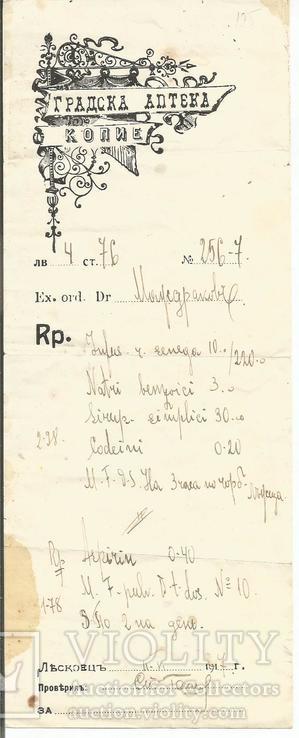 ГРАДСКА АПТЕКА
КОПИЕ
лв 4 ст. 76 № 256-7.
Ex. ord. Dr
Rp. Infus. r. senega 10.0/220.0
Natri benzoici 3.0
Sirup. simplici 30.0
2-38. Codeini 0.20
M. F. D. S. На 3 часа по чорб. лъжица
Rp Aspirin 0.40
1-78 M. F. pulv. D. t. dos. № 10.
S. По 2 на день.
Лѣсковцъ 1917 г.
Провѣрилъ:
ЗА
VIOLITY
auction for collectors
auction.violity.com